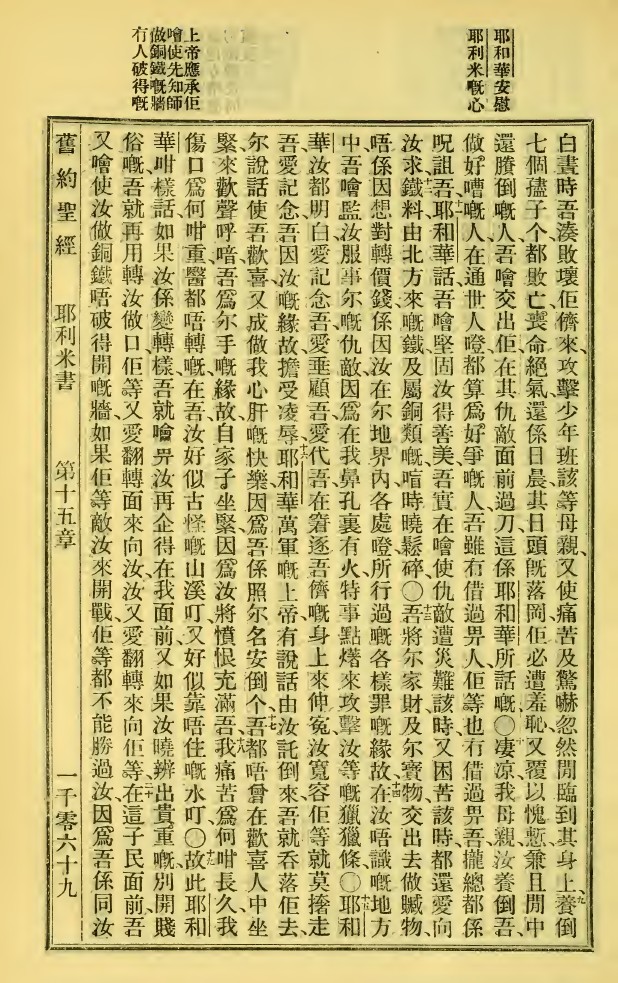 耶和華安慰
耶利米嘅心
上帝應承佢
噲使先知師
做銅鐵嘅牆
冇人破得嘅
白晝時吾湊敗壞佢儕來、攻擊少年班該等母親、又使痛苦及驚嚇忽然閒臨到其身上、九養倒
七個孻子个都敗亡喪命絕氣、還係日晨其日頭旣落岡、佢必遭羞恥、又覆以愧慙、兼且閒中
還賸倒嘅人、吾噲交出佢在其仇敵面前過刀、這係耶和華所話嘅〇淒涼我母親、汝養倒吾、
做好嘈嘅人、在通世人噔都算爲好爭嘅人、吾雖冇借過畀人、佢等也冇借過畀吾、攏總都係
呪詛吾、十一耶和華話、吾噲堅固汝得善美、吾實在噲使仇敵遭災難該時、又困苦該時、都還愛向
汝求、十二鐵料由北方來嘅鐵及屬銅類嘅、喧時曉鬆碎〇十三吾將尔家財及尔寶物、交出去做贓物、
唔係因想對轉價錢、係因汝在尔地界內各處噔所行過嘅各樣罪嘅緣故、十四在汝唔識嘅地方
中、吾噲監汝服事尔嘅仇敵、因爲在我鼻孔裏有火特事點㷮來攻擊汝等嘅獵獵條〇十五耶和
華汝都明白、愛記念吾、愛垂顧吾、愛代吾在窘逐吾儕嘅身上來伸冤、汝寬容佢等、就莫搼走
吾、愛記念吾因汝嘅緣故擔受凌辱、十六耶和華萬軍嘅上帝、有說話由汝託倒來、吾就吞落佢去、
尔說話使吾歡喜、又成做我心肝嘅快樂、因爲吾係照尔名安倒个、十七吾都唔曾在歡喜人中坐
緊來歡聲呼喑、吾爲尔手嘅緣故、自家子坐緊、因爲汝將憤恨充滿吾、十八我痛苦爲何咁長久、我
傷口爲何咁重、醫都唔轉嘅、在吾汝好似古怪嘅山溪叮、又好似靠唔住嘅水叮〇十九故此耶和
華咁樣話、如果汝係變轉樣、吾就噲畀汝再企得在我面前、又如果汝曉辨出貴重嘅、別開賤
俗嘅、吾就再用轉汝做口、佢等又愛翻轉面來向汝、汝又愛翻轉來向佢等、二十在這子民面前、吾
又噲使汝做銅鐵唔破得開嘅牆、如果佢等敵汝來開戰、佢等都不能勝過汝、因爲吾係同汝
舊約聖經　耶利米書　第十五章　一千零六十九